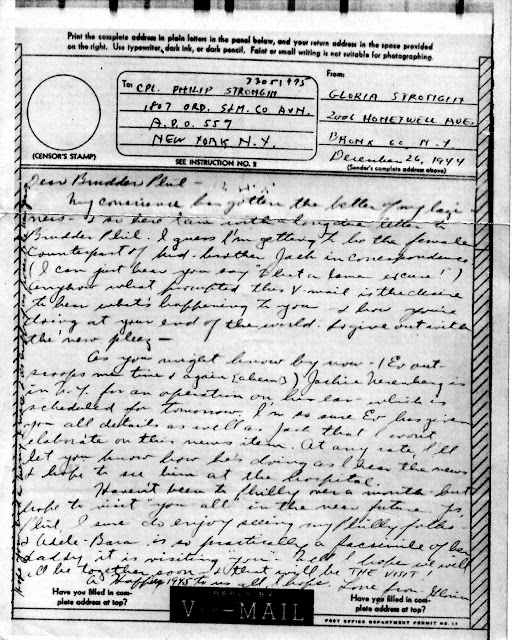 Print the complete address in plain letters in the panel below, and your return address in the space provided
on the right. Use typewriter, dark ink, or dark pencil. Faint or small writing is not suitable for photographing.
33051975
To: CPL. PHILIP STRONGIN
1807 ORD. S&M. CO AVN.
A.P.O. 557
NEW YORK N.Y.
(CENSOR'S STAMP)
SEE INSTRUCTION NO. 2
From:
GLORIA STRONGIN
2006 HONEYWELL AVE.
BRONX 60 N.Y
December 26, 1944
(Sender's complete address above)
Dear Brudder Phil -
My conscience has gotten the better of my lazi-
ness - & so here I am with a long due letter to
Brudder Phil. I guess I'm getting to be the female
Counterpart of brother Jack in correspondence
(I can just hear you say What a lame excuse!")
Anyhow what prompted this V-mail is the desire
to hear what's happening to you & how you're
doing at your end of the world. So give out with
the new pleez -
As you might know by now - (Ev out-
scoops me time & again (ahem)) Jackie is
in N.Y. for an operation on his ear which is
scheduled for tomorrow. I'm so sure Ev has given
you all details as well as Jack that I won't
elaborate on this news item. At any rate, I'll
let you know how he's doing as I hear the news
& hope to see him at the hospital.
Haven't been to Philly over a month but
hope to visit you all in the near future.
Phil, I sure do enjoy seeing my Philly folks
& Adele-Bara is so practically a facsimile of her
Daddy it is visiting "you". Well I hope we will
all be together soon & that will be THE VISIT!
A Happy 1945 to us all I hope. Love from
Have you filled in com-
plete address at top?
REPLY BY
V-MAIL
Have you filled in com-
plete address at top?
POST OFFICE DEPARTMENT PERMIT NO.